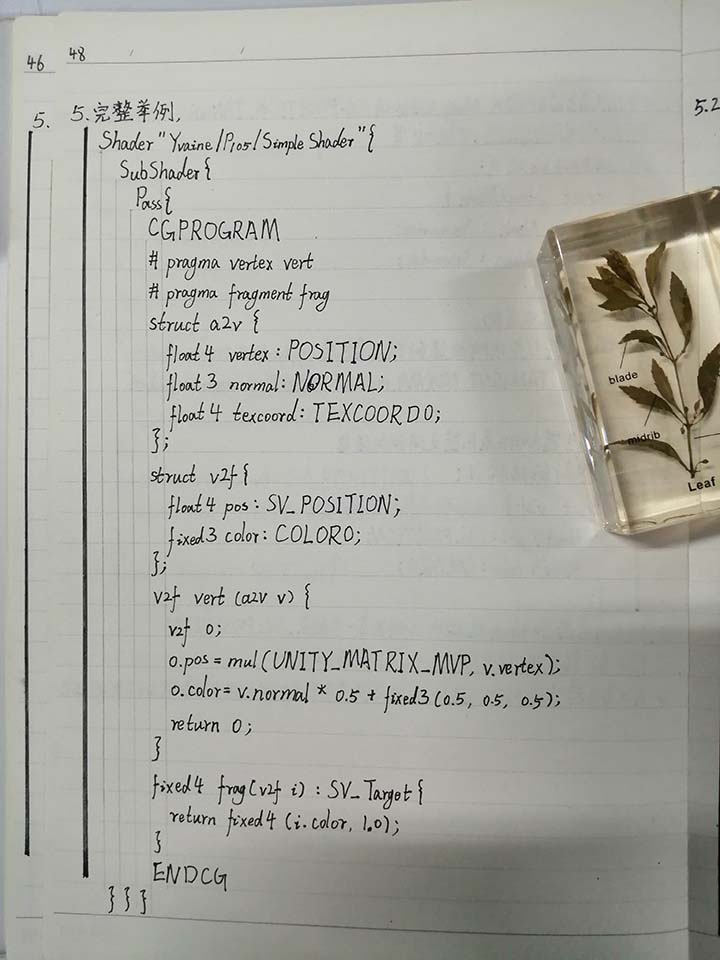 46
48
5.
5.完整举例,
Shader "Yvaine/P105/Simple Shader"{
SubShader{
Pass{
CGPROGRAM
# pragma vertex vert
# pragma fragment frag
struct a2v {
float4 vertex: POSITION;
float3 normal: NORMAL;
float4 texcoord: TEXCOORD0;
};
struct v2f{
float4 pos: SV_POSITION;
fixed3 color: COLOR0;
};
v2f vert (a2v v) {
v2f o;
o.pos = mul(UNITY_MATRIX_MVP, v.vertex);
o.color= v.normal * 0.5 + fixed3(0.5, 0.5, 0.5);
return o;
}
fixed4 frag(v2f i) : SV_Target{
return fixed4 (i.color, 1.0);
}
ENDCG
} } }
5.2
blade
midrib
Leaf